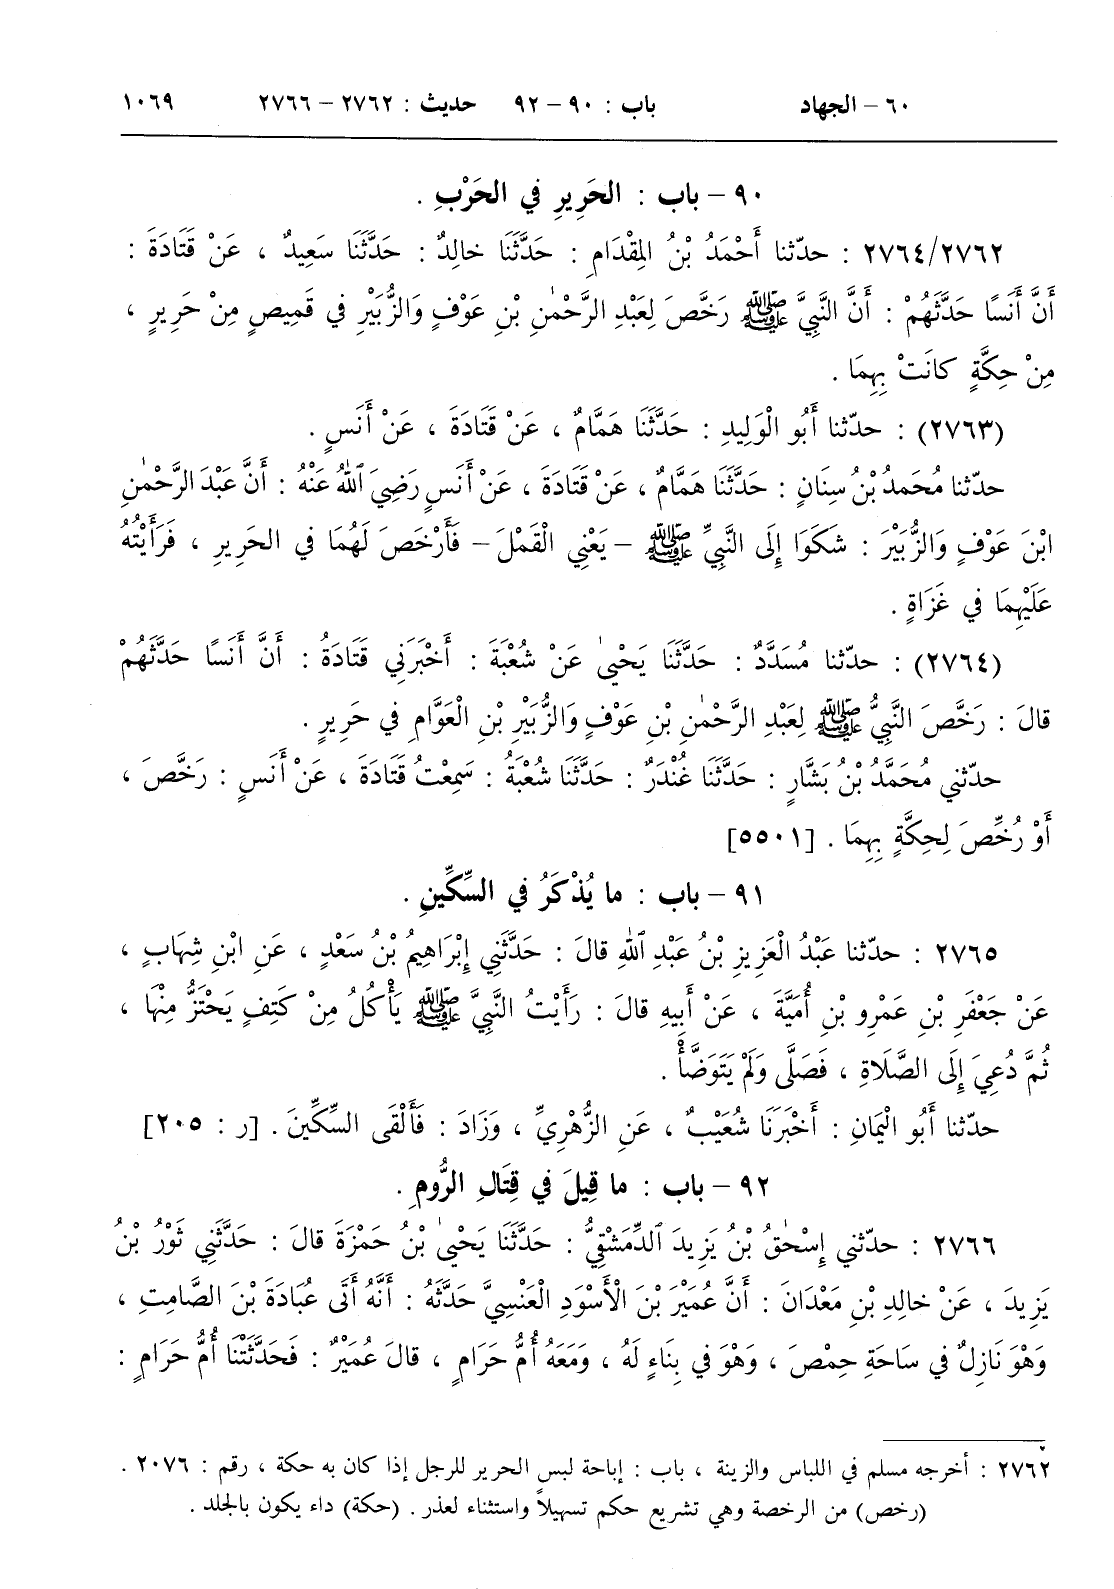 ٦٠ – الجهاد باب : ٩٠ – ٩٢ حديث : ٢٧٦٢ – ٢٧٦٦ ١٠٦٩
٩٠ – باب : الحَرِيرِ في الحَرْبِ .
٢٧٦٤/٢٧٦٢ : حدّثنا أَحْمَدُ بْنُ المِقْدَامِ : حَدَّثَنَا خالِدٌ : حَدَّثَنَا سَعِيدٌ ، عَنْ قَتَادَةَ :
أَنَّ أَنَسًا حَدَّثَهُمْ : أَنَّ النَّبِيَّ ﷺ رَخَّصَ لِعَبْدِ الرَّحْمٰنِ بْنِ عَوْفٍ وَالزُّبَيْرِ في قَمِيصٍ مِنْ حَرِيرٍ ،
مِنْ حِكَّةٍ كانَتْ بِهِمَا .
(٢٧٦٣) : حدّثنا أَبُو الْوَلِيدِ : حَدَّثَنَا هَمَّامٌ ، عَنْ قَتَادَةَ ، عَنْ أَنَسٍ .
حدّثنا مُحَمدُ بْنُ سِنَانٍ : حَدَّثَنَا هَمَّامٌ ، عَنْ قَتَادَةَ ، عَنْ أَنَسٍ رَضِيَ ٱللهُ عَنْهُ : أَنَّ عَبْدَ الرَّحْمٰنِ
ابْنَ عَوْفٍ وَالزُّبَيْرَ : شَكَوَا إِلَى النَّبِيِّ ﷺ – يَعْنِي الْقَمْلَ – فَأَرْخَصَ لَهُمَا في الحَرِيرِ ، فَرَأَيْتُهُ
عَلَيْهِمَا في غَزَاةٍ .
(٢٧٦٤) : حدّثنا مُسَدَّدٌ : حَدَّثَنَا يَحْيىٰ عَنْ شُعْبَةَ : أَخْبَرَنِي قَتَادَةُ : أَنَّ أَنَسًا حَدَّثَهُمْ
قالَ : رَخَّصَ النَّبِيُّ ﷺ لِعَبْدِ الرَّحْمٰنِ بْنِ عَوْفٍ وَالزُّبَيْرِ بْنِ الْعَوَّامِ في حَرِيرٍ .
حدّثني مُحَمَّدُ بْنُ بَشَّارٍ : حَدَّثَنَا غُنْدَرٌ : حَدَّثَنَا شُعْبَةُ : سَمِعْتُ قَتَادَةَ ، عَنْ أَنَسٍ : رَخَّصَ ،
أَوْ رُخِّصَ لِحِكَّةٍ بِهِمَا . [٥٥٠١]
٩١ – باب : ما يُذْكَرُ في السِّكِّينِ .
٢٧٦٥ : حدّثنا عَبْدُ الْعَزِيزِ بْنُ عَبْدِ ٱللهِ قالَ : حَدَّثَنِي إِبْرَاهِيمُ بْنُ سَعْدٍ ، عَنِ ابْنِ شِهَابٍ ،
عَنْ جَعْفَرِ بْنِ عَمْرِو بْنِ أُمَيَّةَ ، عَنْ أَبِيهِ قالَ : رَأَيْتُ النَّبِيَّ ﷺ يَأْكُلُ مِنْ كَتِفٍ يَحْتَزُّ مِنْهَا ،
ثُمَّ دُعِيَ إِلَى الصَّلَاةِ ، فَصَلَّى وَلَمْ يَتَوَضَّأْ .
حدّثنا أَبُو الْيَمَانِ : أَخْبَرَنَا شُعَيْبٌ ، عَنِ الزُّهْرِيِّ ، وَزَادَ : فَأَلْقَى السِّكِّينَ . [ر : ٢٠٥]
٩٢ – باب : ما قِيلَ في قِتَالِ الرُّومِ .
٢٧٦٦ : حدّثني إِسْحٰقُ بْنُ يَزِيدَ ٱلدِّمَشْقِيُّ : حَدَّثَنَا يَحْيىٰ بْنُ حَمْزَةَ قالَ : حَدَّثَنِي ثَوْرُ بْنُ
يَزِيدَ ، عَنْ خالِدِ بْنِ مَعْدَانَ : أَنَّ عُمَيْرَ بْنَ الْأَسْوَدِ الْعَنْسِيَّ حَدَّثَهُ : أَنَّهُ أَتَى عُبَادَةَ بْنَ الصَّامِتِ ،
وَهْوَ نَازِلٌ في سَاحَةِ حِمْصَ ، وَهْوَ في بِنَاءٍ لَهُ ، وَمَعَهُ أُمُّ حَرَامٍ ، قالَ عُمَيْرٌ : فَحَدَّثَتْنَا أُمُّ حَرَامٍ :
٢٧٦٢ : أخرجه مسلم في اللباس والزينة ، باب : إباحة لبس الحرير للرجل إذا كان به حكة ، رقم : ٢٠٧٦ .
(رخص) من الرخصة وهي تشريع حكم تسهيلاً واستثناء لعذر . (حكة) داء يكون بالجلد .